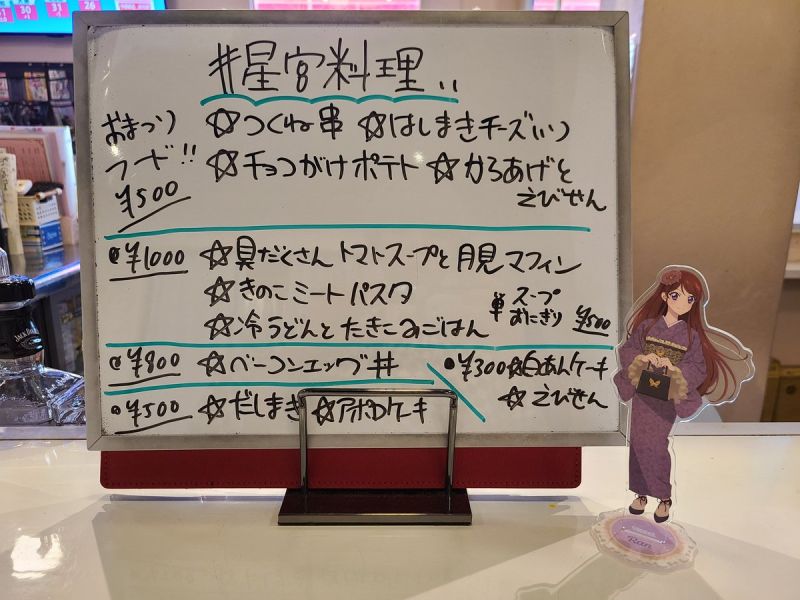 #星宮料理..
おまつり ☆つくね串 ☆はしまきチーズ(い)
フード!! ☆チョコがけポテト ☆からあげと
¥500 えびせん
@¥1000 ☆具だくさん トマトスープと月見マフィン
☆きのこミートパスタ
単 スープ おにぎり ¥500
☆冷うどんとたきこみごはん
@¥800 ☆ベーコンエッグ丼
●¥300 ☆白あんケーキ
☆えびせん
●¥500 ☆だしまき ☆アポロケーキ
JACK DANIEL
Ran
30
31
26